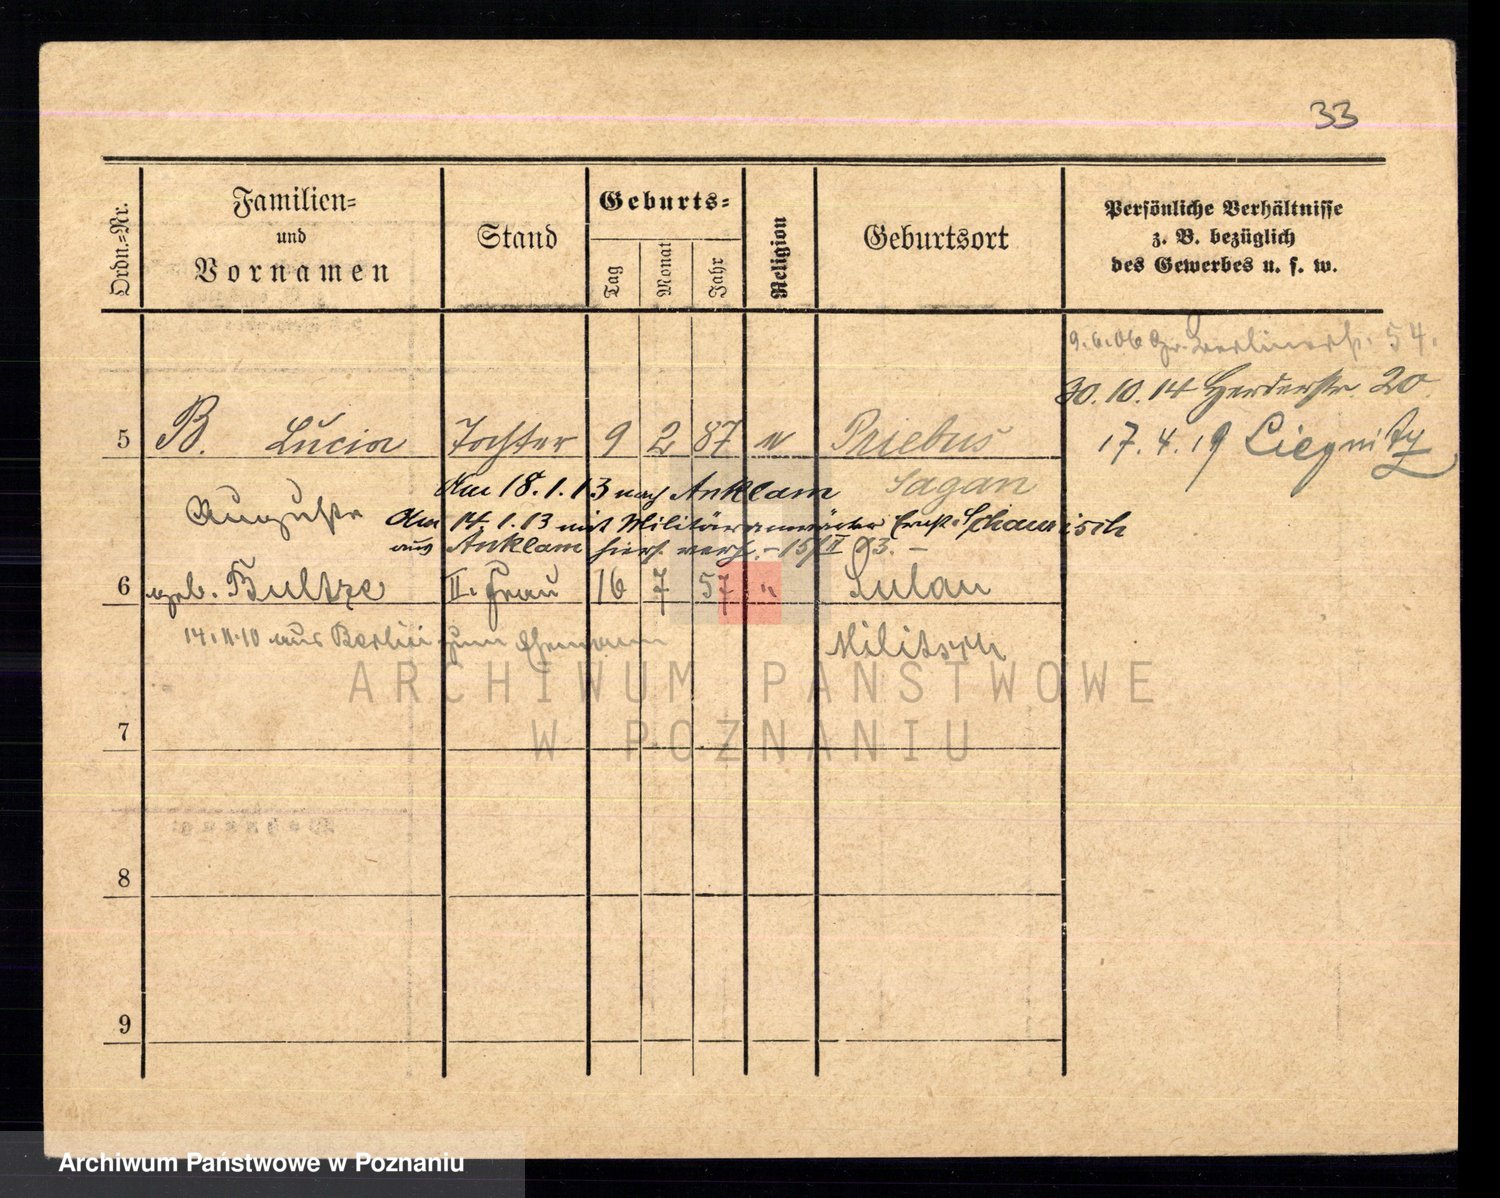 33
Ordn.=Nr.
Familien=
und
Vornamen
Stand
Geburts=
Tag
Monat
Jahr
Religion
Geburtsort
Persönliche Verhältnisse
z. B. bezüglich
des Gewerbes u. s. w.
9.6.06 Gr. Berlinerstr. 54.
30.10.14 Herderstr. 20
17.4.19 Liegnitz
5 B. Lucia Tochter 9 2 87 Priebus
Sagan
Am 18.1.13 nach Anklam
Auguste
Am 14.1.13 mit Militäranwärter Ernst Schamrisch
aus Anklam hier verh. - 15/II 13. -
6 geb. Bultze II. Frau 16 7 57 " Sulau
14.11.10 aus Berlin zum Ehemann
Militsch
ARCHIWUM PAŃSTWOWE
W POZNANIU
7
8
9
Archiwum Państwowe w Poznaniu